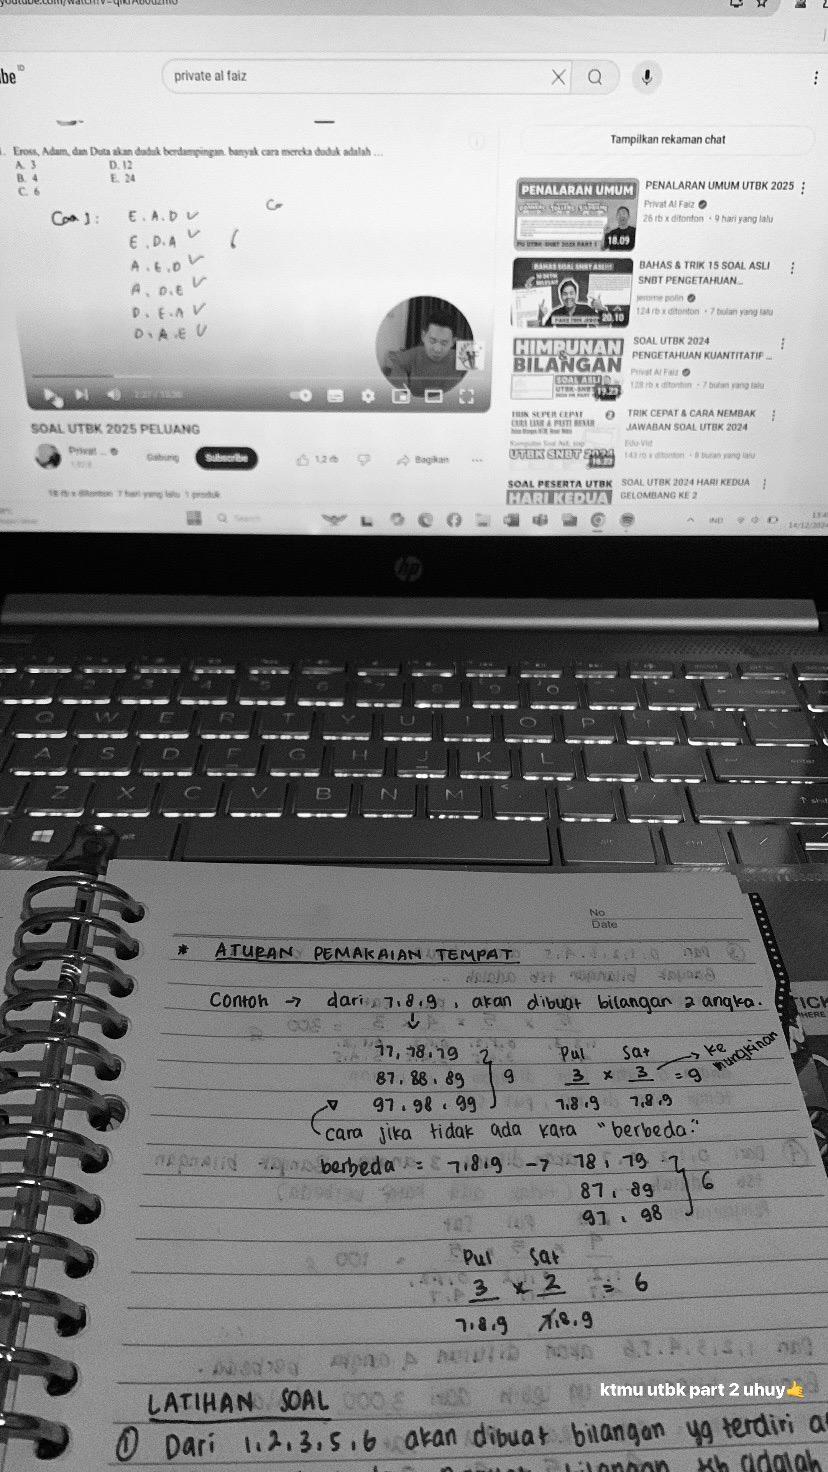 be ID
private al faiz
Tampilkan rekaman chat
Eross, Adam, dan Duta akan duduk berdampingan. banyak cara mereka duduk adalah ...
A. 3 D. 12
B. 4 E. 24
C. 6
Cara 1: E.A.D ✓
E.D.A ✓ 6
A.E.D ✓
A.D.E ✓
D.E.A ✓
D.A.E ✓
PENALARAN UMUM
18.09
PENALARAN UMUM UTBK 2025
Privat Al Faiz
26 rb x ditonton • 9 hari yang lalu
20.10
BAHAS & TRIK 15 SOAL ASLI
SNBT PENGETAHUAN...
jerome polin
124 rb x ditonton • 7 bulan yang lalu
HIMPUNAN
& BILANGAN
SOAL ASLI
SOAL UTBK 2024
PENGETAHUAN KUANTITATIF ...
Privat Al Faiz
128 rb x ditonton • 7 bulan yang lalu
TRIK SUPER CEPAT
UTBK SNBT 2024
TRIK CEPAT & CARA NEMBAK
JAWABAN SOAL UTBK 2024
143 rb x ditonton • 8 bulan yang lalu
SOAL PESERTA UTBK
HARI KEDUA
SOAL UTBK 2024 HARI KEDUA
GELOMBANG KE 2
SOAL UTBK 2025 PELUANG
Privat ...
Gabung Subscribe 1,2 rb Bagikan
18 rb x ditonton 7 hari yang lalu 1 produk
Search
IND
hp
Q W E R T Y U I O P
A S D F G H J K L
Z X C V B N M
No
Date
* ATURAN PEMAKAIAN TEMPAT
Contoh → dari 7.8.9, akan dibuat bilangan 2 angka.
77, 78, 79
87, 88, 89 9
97, 98, 99
Pul Sat
3 x 3 = 9 → ke mungkinan
7.8.9 7.8.9
cara jika tidak ada kata "berbeda"
berbeda = 7.8.9 → 78, 79
87, 89 6
97, 98
Pul Sat
3 x 2 = 6
7.8.9 7.8.9
LATIHAN SOAL
ktmu utbk part 2 uhuy🤙
① Dari 1, 2, 3, 5, 6 akan dibuat bilangan yg terdiri
bilangan tsb adalah